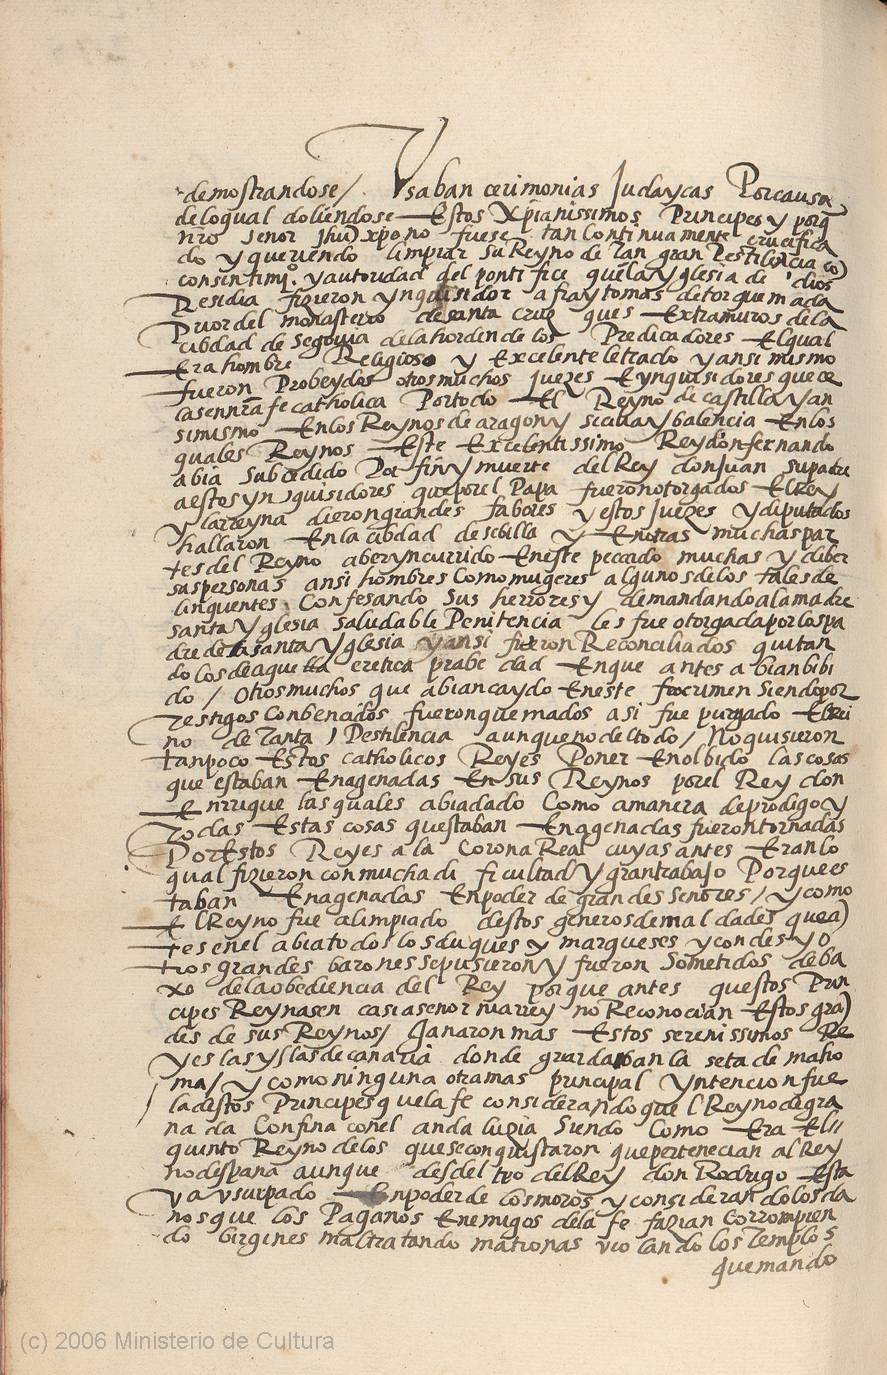 demostrandose / Usaban cerimonias Judaycas Por causa
delo qual doliendose Estos Xpianissimos Principes y porq
nro senor Jhu xpo no fuese tan continuamente crucifica
do y queriendo limpiar su Reyno de tan gran Pestilencia co
consintimjo. y autoridad del pontifice que la yglesia de dios
Residia fizieron ynquisidor a fray tomas de torquemada
Prior del monasterio de santa cruz ques Extramuros de la
cibdad de Segovia de la horden de los Predicadores El qual
Era hombre Religioso y Excelente letrado y ansi mismo
fueron Probeydos otros muchos juezes E ynquisidores que ce
lasen nra fe catholica Por todo El Reyno de castilla y an
simismo En los Reynos de aragon y sicilia y balencia En los
quales Reynos Este Excelentissimo Rey don fernando
abia subcedido Por fin y muerte del Rey don Juan su padre
a estos ynquisidores que por el Papa fueron otorgados El Rey
y la rreyna dieron grandes fabores y estos Juezes y diputados
hallaron En la cibdad de sebilla y En otras muchas par
tes del Reyno aber yncurrido En este peccado muchas y diber
sas personas ansi hombres Como mugeres algunos de los tales de
linquentes Confesando sus herrores y demandando a la madre
santa yglesia saludable Penitencia les fue otorgada por los pa
dre de la santa yglesia y ansi fueron Reconciliados quitan
dolos de aquella eretica prabedad En que antes abian bibi
do / Otros muchos que abian caydo En este crimen siendo por
testigos Conbencidos fueron quemados asi fue purgado El rei
no de tanta Pestilencia aunque no del todo / No quisieron
tanpoco Estos catholicos Reyes Poner En olbido las cosas
que estaban Enagenadas En sus Reynos por el Rey don
Enrrique las quales abia dado Como a manera de prodigo y
todas Estas cosas questaban Enagenadas fueron tornadas
Por Estos Reyes a la Corona Real cuyas antes Eran lo
qual fizieron con mucha dificultad y gran trabajo Porque es
taban Enagenadas En poder de grandes Senores / y como
El Reyno fue alimpiado destos generos de maldades que a)
tes en el abia todos los duques y marqueses y condes y o
tros grandes barones se pusieron y fueron Sometidos deba
xo de la obediencia del Rey porque antes questos Prin
cipes Reynasen casi a senor ni a rrey no Reconocian Estos gra)
des de sus Reynos / Ganaron mas Estos serenissimos Re
yes las yslas de canaria donde guardaban la seta de maho
ma / y como ninguna otra mas principal yntencion fue
la destos Principes que la fe considerando que el Reyno de gra
nada Confina con el andaluzia Siendo Como Era El
quinto Reyno de los que se conquistaron que pertenecian al Rey
no despana aunque desdel tpo del Rey don Rodrigo Esta
va vsurpado En poder de los moros y considerando los da
nos que los Paganos Enemigos de la fe fazian Corrompien
do birgines maltratando matronas violando los Templos
quemando
(c) 2006 Ministerio de Cultura